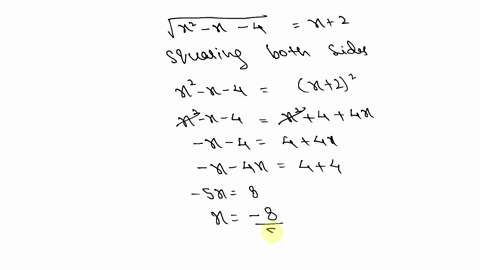 √(x² - x - 4) = x + 2
Squaring both sides
x² - x - 4 = (x + 2)²
x² - x - 4 = x² + 4 + 4x
- x - 4 = 4 + 4x
- x - 4x = 4 + 4
- 5x = 8
x = - 8/5